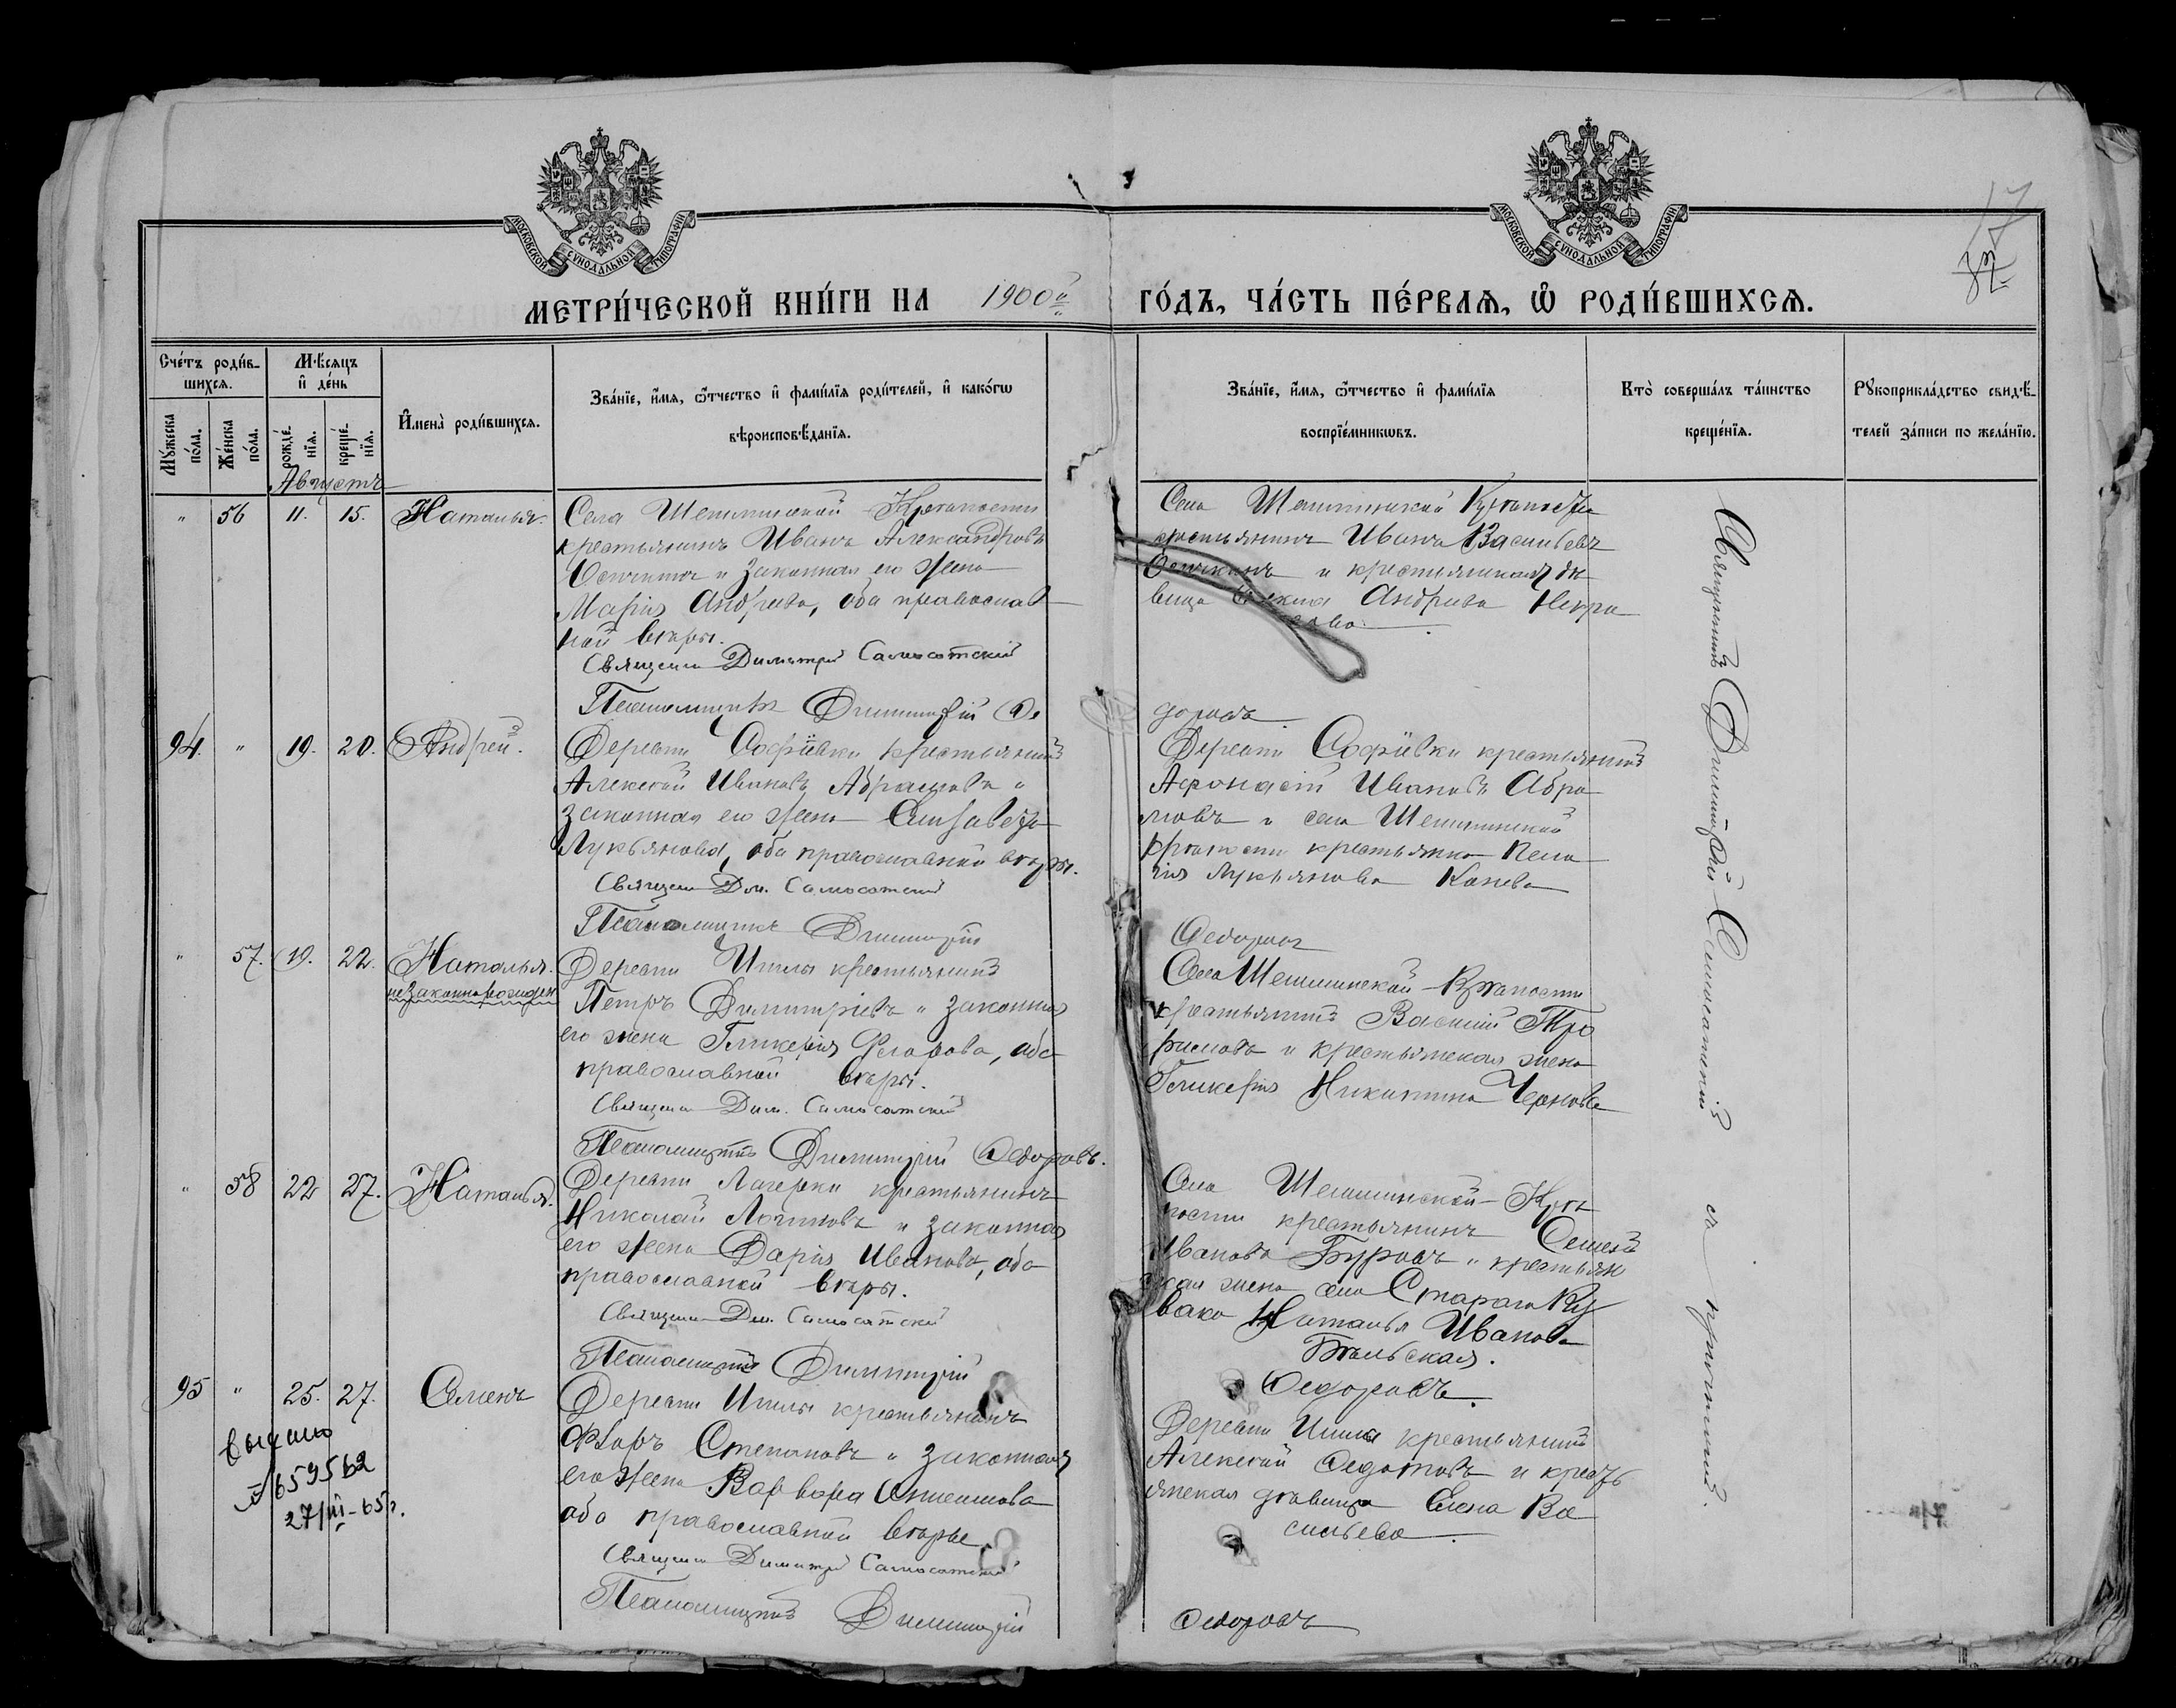 МОСКОВСКОЙ СУНОДАЛЬНОЙ ТИПОГРАФІИ
МОСКОВСКОЙ СУНОДАЛЬНОЙ ТИПОГРАФІИ
МЕТРИ́ЧЕСКОЙ КНИ́ГИ НА 1900й ГО́ДЪ, ЧА́СТЬ ПЕ́РВАѦ, Ѽ РОДИ́ВШИХСѦ.
Сче́тъ роди́в-
шихсѧ.
Мѣ́сѧцъ
и҆ де́нь
Мꙋ́жеска
по́ла.
Же́нска
по́ла.
рожде́-
нїѧ.
креще́-
нїѧ.
И҆мена̀ роди́вшихсѧ.
Зва́нїе, и҆́мѧ, ѻ҆́тчество и҆ фами́лїѧ роди́телей, и҆ како́гѡ
вѣроисповѣ́данїѧ.
Зва́нїе, и҆́мѧ, ѻ҆́тчество и҆ фами́лїѧ
воспрїе́мникѡвъ.
Кто̀ соверша́лъ та́инство
креще́нїѧ.
Рꙋкоприкла́дство свидѣ́-
телей за́писи по жела́нїю.
Августъ
" 56 11. 15. Наталья.
Села Шешминской Крѣпости
крестьянинъ Иванъ Александровъ
и законная его жена
Марія Андреева, оба православ
ной вѣры.
Священ Димитрій Самосатскій
Псаломщикъ Димитрій Ѳе
Села Шешминской Крѣпости
крестьянинъ Иванъ Васильевъ
и крестьянская дѣ
вица Андреева Некра
сова
доровъ
94. " 19. 20. Андрей.
Деревни Софіевки крестьянинъ
Алексѣй Ивановъ Абрамовъ и
законная его жена Елисавета
Лукьянова, оба православной вѣры.
Священ Дим. Самосатскій
Псаломщикъ Димитрій
Деревни Софіевки крестьянинъ
Афонасій Ивановъ Абра
мовъ и села Шешминской
крѣпости крестьянка Пела
гія Лукьянова Конева
Ѳедоровъ
" 57. 19. 22. Наталья.
незаконнорожден
Деревни крестьянинъ
Петръ Димитріевъ и законная
его жена Гликерія Ѳедорова, оба
православной вѣры.
Священ Дим. Самосатскій
Псаломщикъ Димитрій Ѳедоровъ.
Села Шешминской Крѣпости
крестьянинъ Василій Тро
фимовъ и крестьянская жена
Гликерія Никитина Чернова
" 58 22 27. Наталья.
Деревни крестьянинъ
Николай Логиновъ и законная
его жена Дарія Иванова, оба
православной вѣры.
Священ Дим. Самосатскій
Псаломщикъ Димитрій
Села Шешминской Крѣ
пости крестьянинъ Семенъ
Ивановъ Буровъ и крестьян
ская жена села Стараго Ку
вака Наталья Иванова
Бѣльская.
Ѳедоровъ.
95 " 25. 27. Семенъ
Деревни крестьянинъ
Ѳедоръ Степановъ и законная
его жена Варвара
оба православной вѣры
Священ Димитрій Самосатскій
Псаломщикъ Димитрій
Деревни крестьянинъ
Алексѣй Ѳедотовъ и кресть
янская дѣвица Елена Ва
сильева
Ѳедоровъ
659562
27/III-65г.
Священникъ Димитрій Самосатскій съ причтомъ.